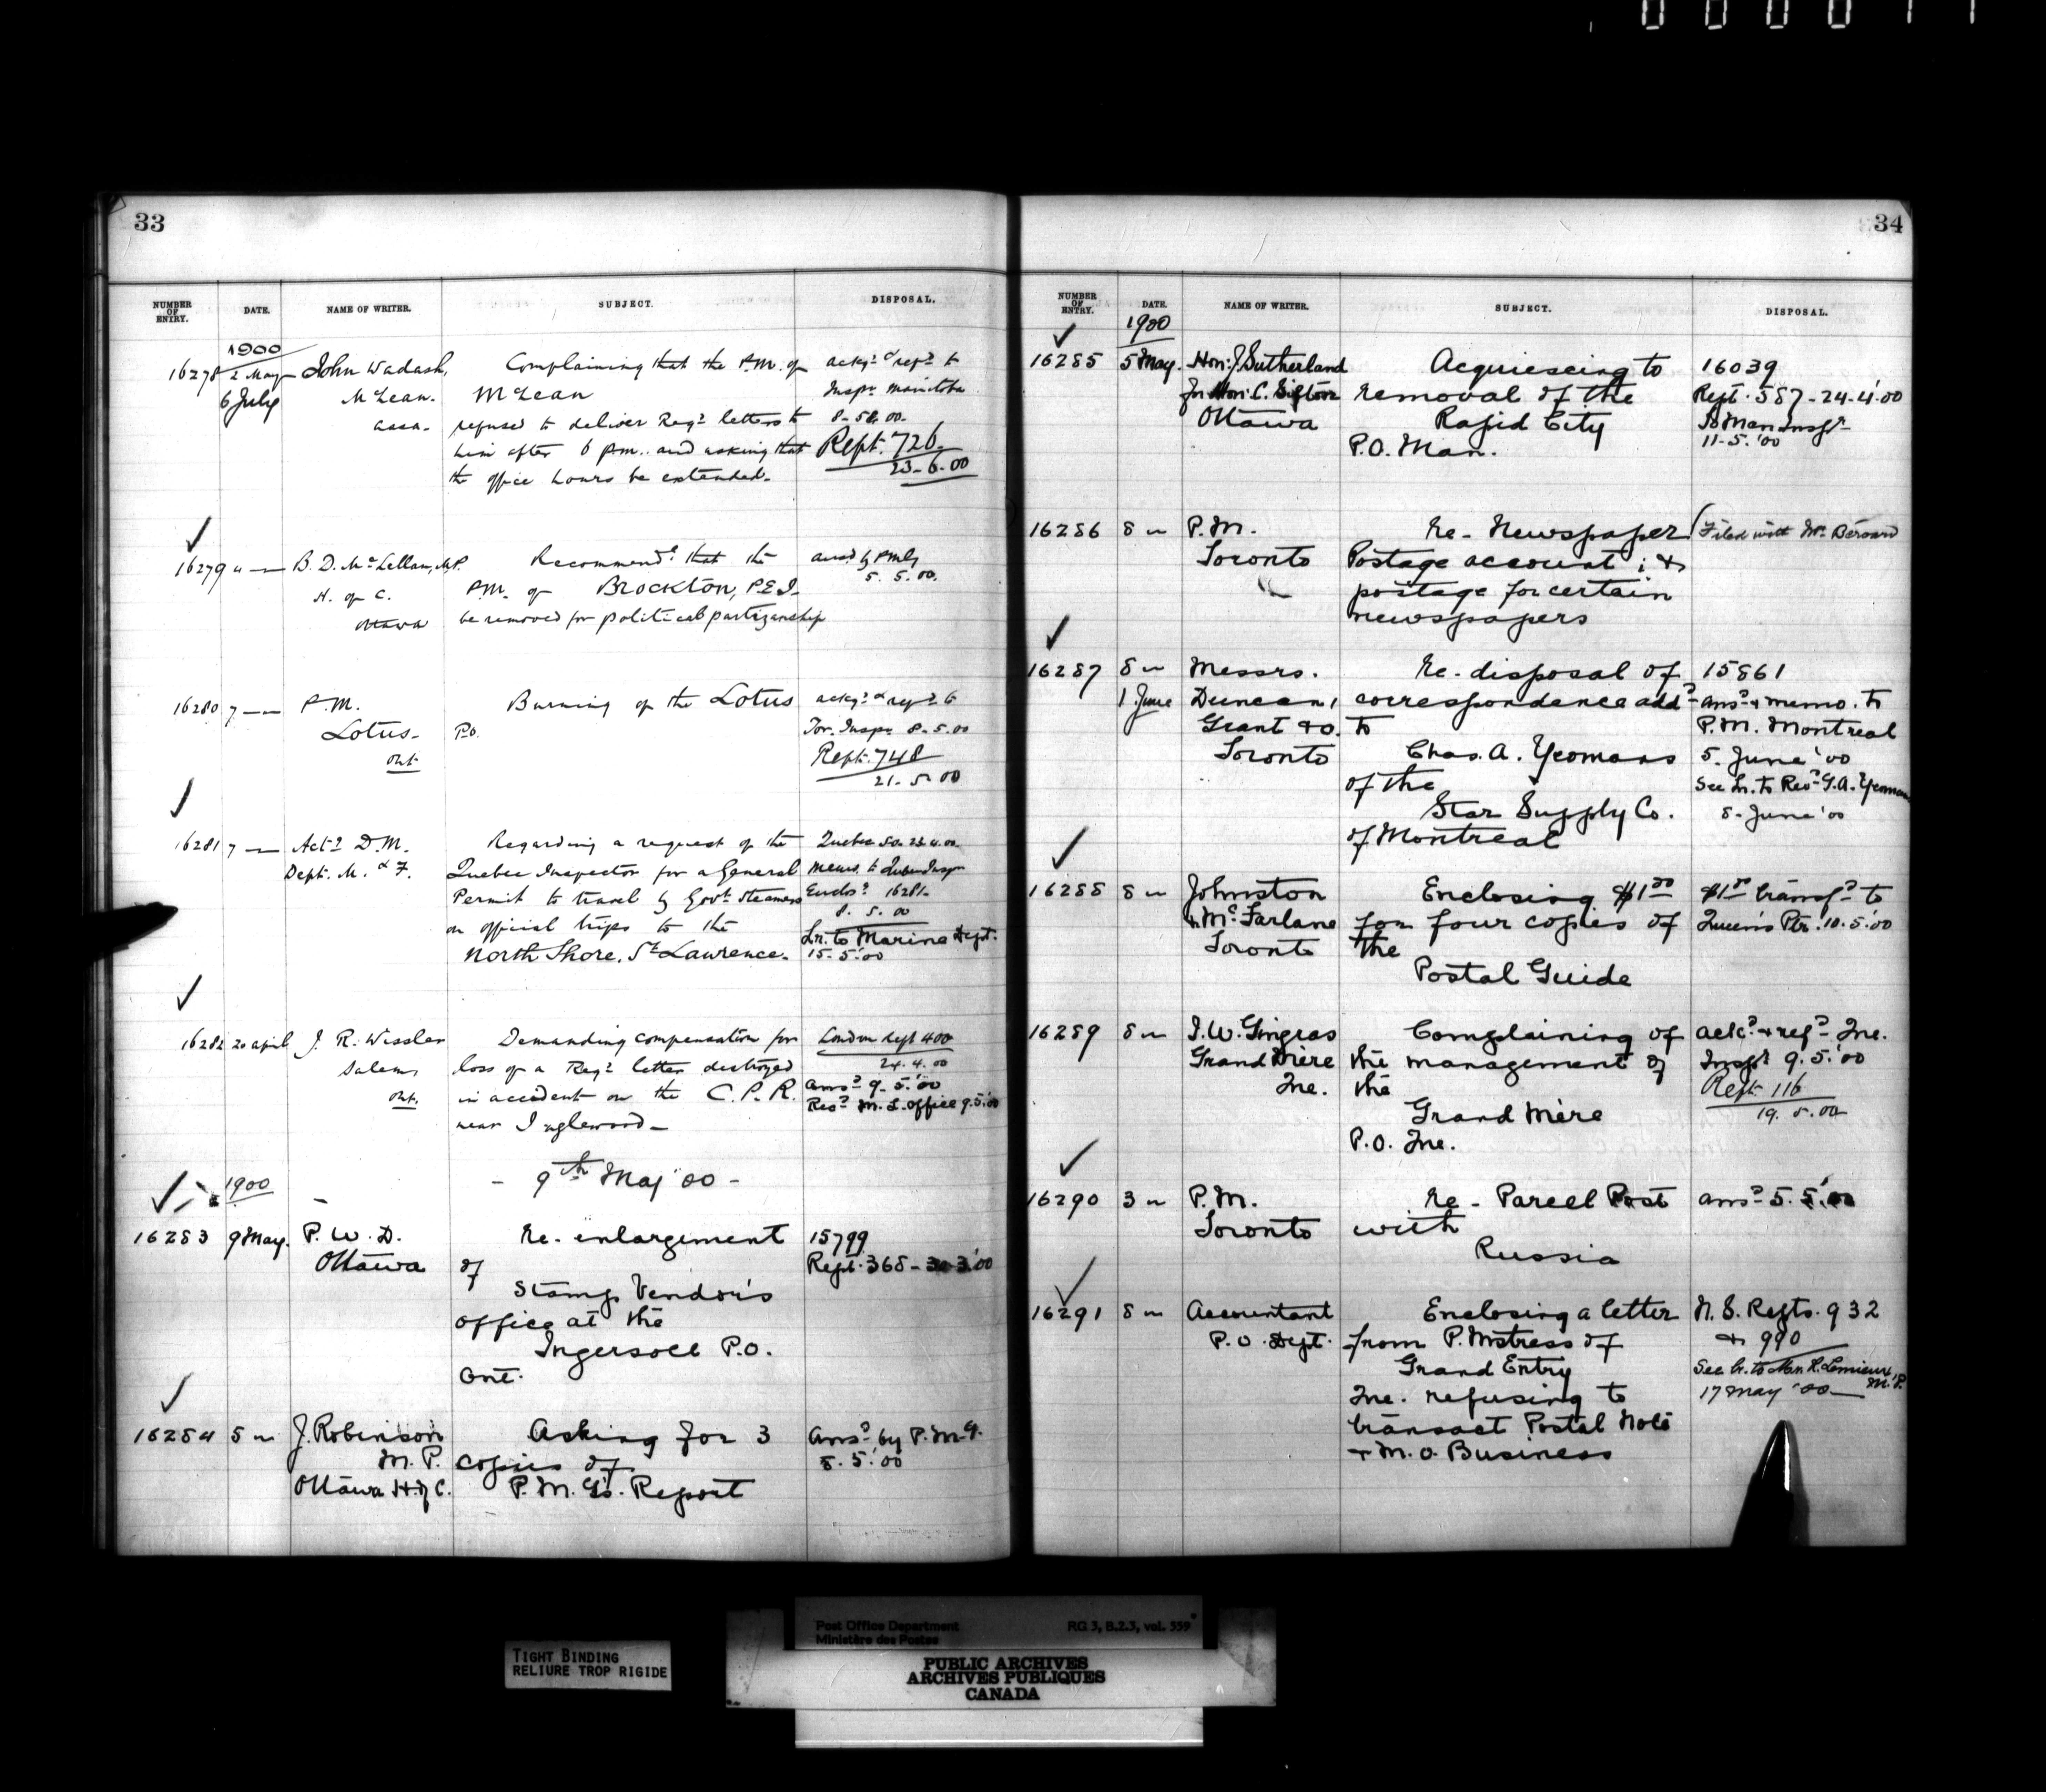 33
NUMBER OF ENTRY. DATE. NAME OF WRITER. SUBJECT. DISPOSAL.
1900
16278 2 May John Wadash, Complaining that the P.M. of ackd & refd to
6 July McLean. McLean Inspr Manitoba
assa. refused to deliver Regd letters to 8-5-00.
him after 6 P.M. and asking that Rept. 726
the office hours be extended. 23-6-00
16279 " B. D. McLellan, M.P. Recommendg that the ansd by PMG
H. of C. P.M. of BROCKTON, P.E.I. 5. 5. 00.
Ottawa be removed for political partizanship
16280 7 P.M. Burning of the Lotus ackd & refd to
Lotus P.O. Tor. Inspr 8.5.00
Ont. Rept. 748
21.5.00
16281 7 Actg D.M. Regarding a request of the Quebec 50. 23.4.00
Dept. M. & F. Quebec Inspector for a General Memo. to Quebec Inspr
Permit to travel by Govt Steamers Encls? 16281
on official trips to the 8. 5. 00
North Shore, St Lawrence. Lr. to Marine Dept.
15.5.'00
16282 20 april J. R. Wissler Demanding compensation for London Rept 400
Salem, loss of a Regd letter destroyed 24.4.00
Ont. in accident on the C.P.R. Ansd 9.5.'00
near Inglewood Recd M. L. office 9.5.'00
- 9th May '00 -
1900
16283 9 May. P. W. D. Re. enlargement 15799
Ottawa of Rept. 368 - 30.3.'00
Stamp Vendor's
office at the
Ingersoll P.O.
Ont.
16284 5 " J. Robinson Asking for 3 Ansd by P.M.G.
M. P. copies of 8.5.'00
Ottawa H. of C. P.M.G's. Report
34
NUMBER OF ENTRY. DATE. NAME OF WRITER. SUBJECT. DISPOSAL.
1900
16285 5 May. Hon: J. Sutherland Acquiescing to 16039
for Hon: C. Sifton removal of the Rept. 587 - 24.4.'00
Ottawa Rapid City To Man Inspr
P.O. Man. 11.5.'00
16286 8 " P.M. Re- Newspaper Filed with Mr Bérard
Toronto Postage account; &
postage for certain
newspapers
16287 8 " Messrs. Re. disposal of 15861
1 June Duncan, correspondence addd ansd & memo. to
Grant & Co. to P.M. Montreal
Toronto Chas. A. Yeomans 5. June '00
of the See Lr. to Revd G.A. Yeomans
Star Supply Co. 8. June '00
of Montreal
16288 8 " Johnston Enclosing $1 00 $1 00 transfd to
& McFarlane for four copies of Queen's Ptr. 10.5.'00
Toronto the
Postal Guide
16289 8 " J. W. Gingras Complaining of ackd & refd Que.
Grand Mère the management of Inspr 9.5.'00
Que. the Rept 116
Grand Mère 19. 5.00
P.O. Que.
16290 3 " P.M. Re - Parcel Post ansd 5.5.'00
Toronto with
Russia
16291 8 " Accountant Enclosing a letter N. S. Repts. 932
P.O. Dept. from P. Mistress of & 990
Grand Entry See Lr. to Hon. R. Lemieux M.P.
Que. refusing to 17 May '00
transact Postal Note
& M.O. Business
Post Office Department RG 3, B.2.3, vol. 559
Ministère des Postes
TIGHT BINDING
RELIURE TROP RIGIDE
PUBLIC ARCHIVES
ARCHIVES PUBLIQUES
CANADA